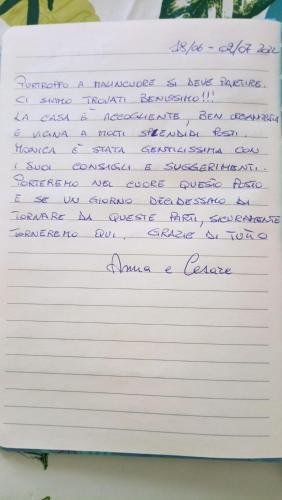 18/06 - 02/07 2022
PURTROPPO A MALINCUORE SI DEVE PARTIRE.
CI SIAMO TROVATI BENISSIMO!!!
LA CASA È ACCOGLIENTE, BEN ORGANIZZATA
E VICINA A MOLTI SPLENDIDI POSTI.
MONICA È STATA GENTILISSIMA CON
I SUOI CONSIGLI E SUGGERIMENTI.
PORTEREMO NEL CUORE QUESTO POSTO
E SE UN GIORNO DECIDESSIMO DI
TORNARE DA QUESTE PARTI, SICURAMENTE
TORNEREMO QUI. GRAZIE DI TUTTO
Anna e Cesare